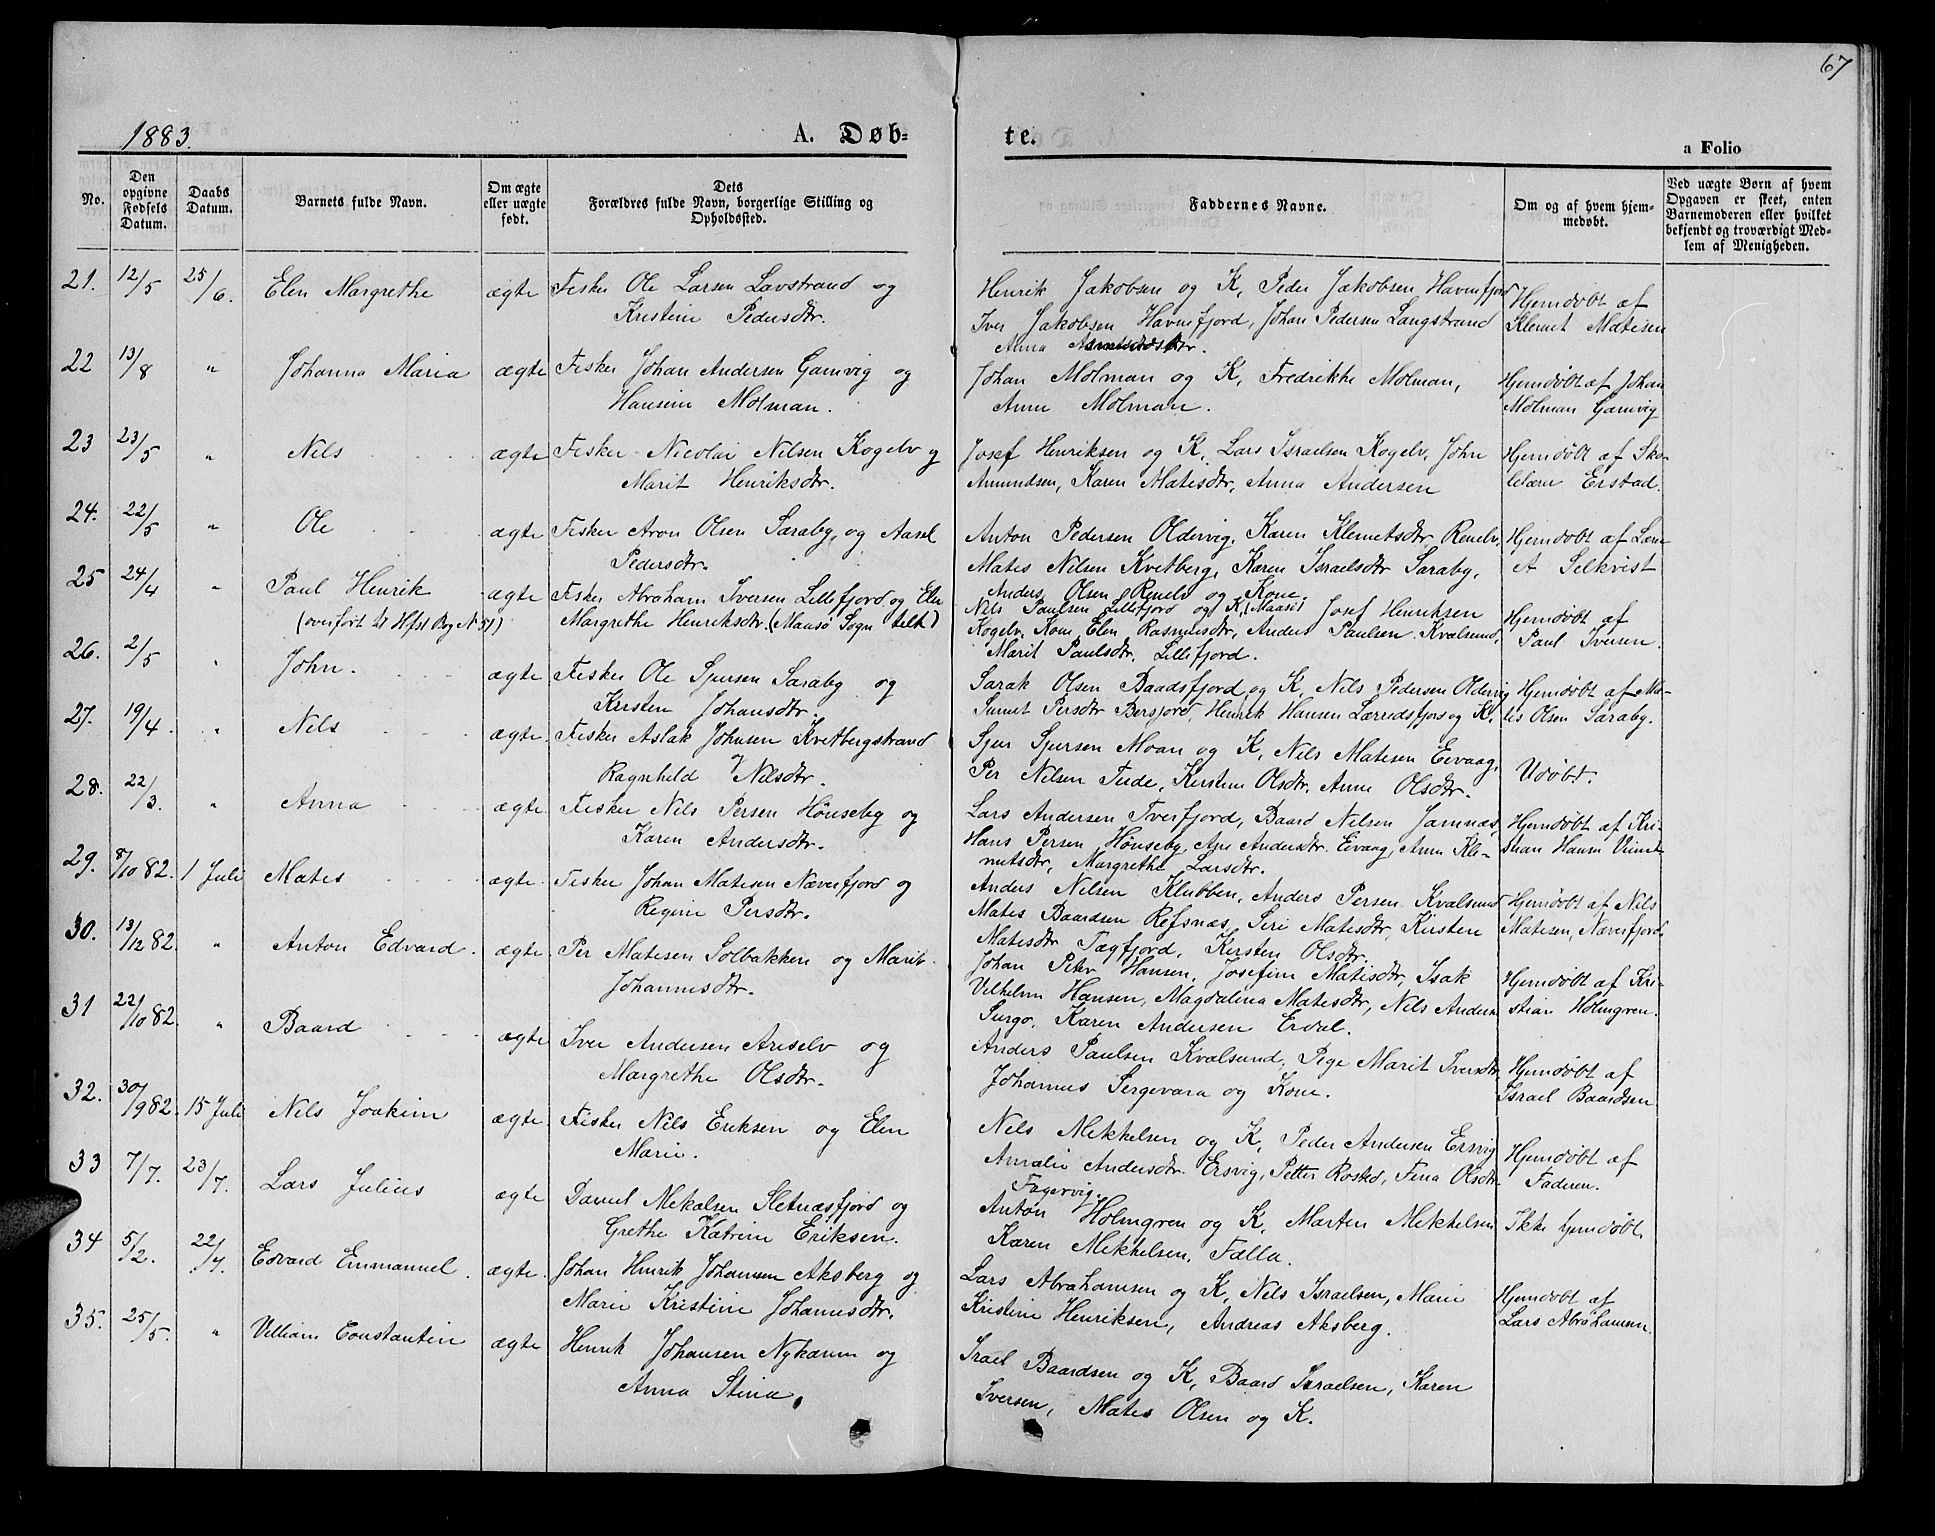 67
1883.
A. Døb-
te.
a Folio
No.
Den opgivne Fødsels Datum.
Daabs Datum.
Barnets fulde Navn.
Om ægte eller uægte født.
Dets Forældres fulde Navn, borgerlige Stilling og Opholdssted.
Faddernes Navne.
Om og af hvem hjemmedøbt.
Ved uægte Børn af hvem Opgaven er skeet, enten Barnemoderen eller hvilket bekjendt og troværdigt Medlem af Menigheden.
21. 12/5 25/6. Elen Margrethe ægte Fisker Ole Larsen Lavstrand og
Kristine Pedersdtr.
Henrik Jakobsen og K, Peder Jakobsen Havnefjord
Iver Jakobsen Havnefjord, Johan Pedersen Langstrand
Anna
Hjemdøbt af
Klemet Matisen
22 13/8 " Johanna Maria ægte Fisker Johan Andersen Gamvig og
Hansine Molman.
Johan Molman og K, Fredrikke Molman,
Anne Molman.
Hjemdøbt af Johan
Molman Gamvig
23 23/5 " Nils ægte Fisker Nicolai Nilsen Kogelv og
Marit Henriksdtr.
Josef Henriksen og K, Lars Israelsen Kogelv, John
Amundsen, Karen Matisdtr, Anna Andersen
Hjemdøbt af Sko-
lelærer Erstad.
24. 22/5 " Ole ægte Fisker Aron Olsen Saraby, og Aasel
Pedersdtr.
Anton Pedersen Oldervig, Karen Klemetsdtr Renelv,
Mates Nilsen Kvitberg, Karen Israelsdtr Saraby,
Anders Olsen Renelv og Kone.
Hjemdøbt af
A Selkvist
25 24/4 " Paul Henrik ægte Fisker Abraham Iversen Lillefjord og Elen
(overført til Hfst Bog N 51) Margrethe Henriksdtr. (Maasø Sogn tilh)
Nils Paulsen Lillefjord og K, (Maasø) Josef Henriksen
Kogelv, Kone Elen Rasmusdtr, Anders Paulsen Kvalsund,
Marit Paulsdtr. Lillefjord.
Hjemdøbt af
Paul Iversen.
26. 2/5 " John. ægte Fisker Ole Sjursen Saraby og
Kirsten Johansdtr.
Sarak Olsen Baadsfjord og K, Nils Pedersen Oldervig
Persdtr Bersfjord, Henrik Hansen Lærredsfjord og K.
Hjemdøbt af Ma-
tis Olsen Saraby.
27. 19/4. " Nils ægte Fisker Aslak Johnsen Kvitbergstrand
og Ragnhild Nilsdtr.
Sjur Sjursen Moan og K, Nils Matisen Eivaag,
Per Nilsen Tude, Kirstine Olsdtr, Anne Olsdtr.
Udøbt.
28. 22/3. " Anna ægte Fisker Nils Persen Hønseby og
Karen Andersdtr.
Lars Andersen Tverfjord, Baard Nilsen Jamnæs,
Hans Persen Hønseby, Ane Andersdtr. Eivaag, Anne Kle-
metsdtr, Margrethe Larsdtr.
Hjemdøbt af Kri-
stian Hansen
29. 8/10 82. 1 Juli Mates ægte. Fisker Johan Matisen Næverfjord og
Regine Persdtr.
Anders Nilsen Klubben, Anders Persen Kvalsund
Mates Baardsen Refsnæs, Siri Matisdtr, Kirsten
Matisdtr Fægfjord, Kirsten Olsdtr.
Hjemdøbt af Nils
Matisen, Næverfjord.
30. 13/12 82. " Anton Edvard. ægte. Per Matisen Solbakken og Marit
Johannesdtr.
Johan Peter Hansen, Josefine Matisdtr, Isak
Vilhelm Hansen, Magdalena Matisdtr, Nils Anders
Surgo, Karen Andersen Erdal.
Hjemdøbt af Kri-
stian Holmgren.
31 22/10 82. " Baard ægte Iver Andersen Ariselv og
Margrethe Olsdtr.
Anders Paulsen Kvalsund, Pige Marit Iversdtr
Johannes Sergevara og Kone.
Hjemdøbt af
Israel Baardsen
32. 30/9 82. 15 Juli Nils Joakim ægte. Fisker Nils Eriksen og Elen
Marie.
Nils Mikkelsen og K, Peder Andersen Ersvig
Amalie Andersdtr. Ersvig, Petter Rosted, Fina Olsdtr.
Fagervig.
Hjemdøbt af
Faderen.
33 7/7. 23/7. Lars Julius ægte Daniel Mekalsen Sletnæsfjord og
Grethe Katrine Eriksen.
Anton Holmgren og K, Marten Mikkelsen
Karen Mikkelsen, Falla.
Ikke hjemdøbt.
34 5/2. 22/7. Edvard Emmanuel. ægte. Johan Henrik Johansen Aksberg og
Marie Kristine Johannesdtr.
Lars Abrahamsen og K, Nils Israelsen, Marie
Kristine Henriksen, Andreas Aksberg.
Hjemdøbt af
Lars Abrahamsen.
35. 25/5. " Villiam Constantin ægte Henrik Johansen og
Anna Stina.
Israel Baardsen og K, Baard Israelsen, Karen
Iversen, Mates Olsen og K.